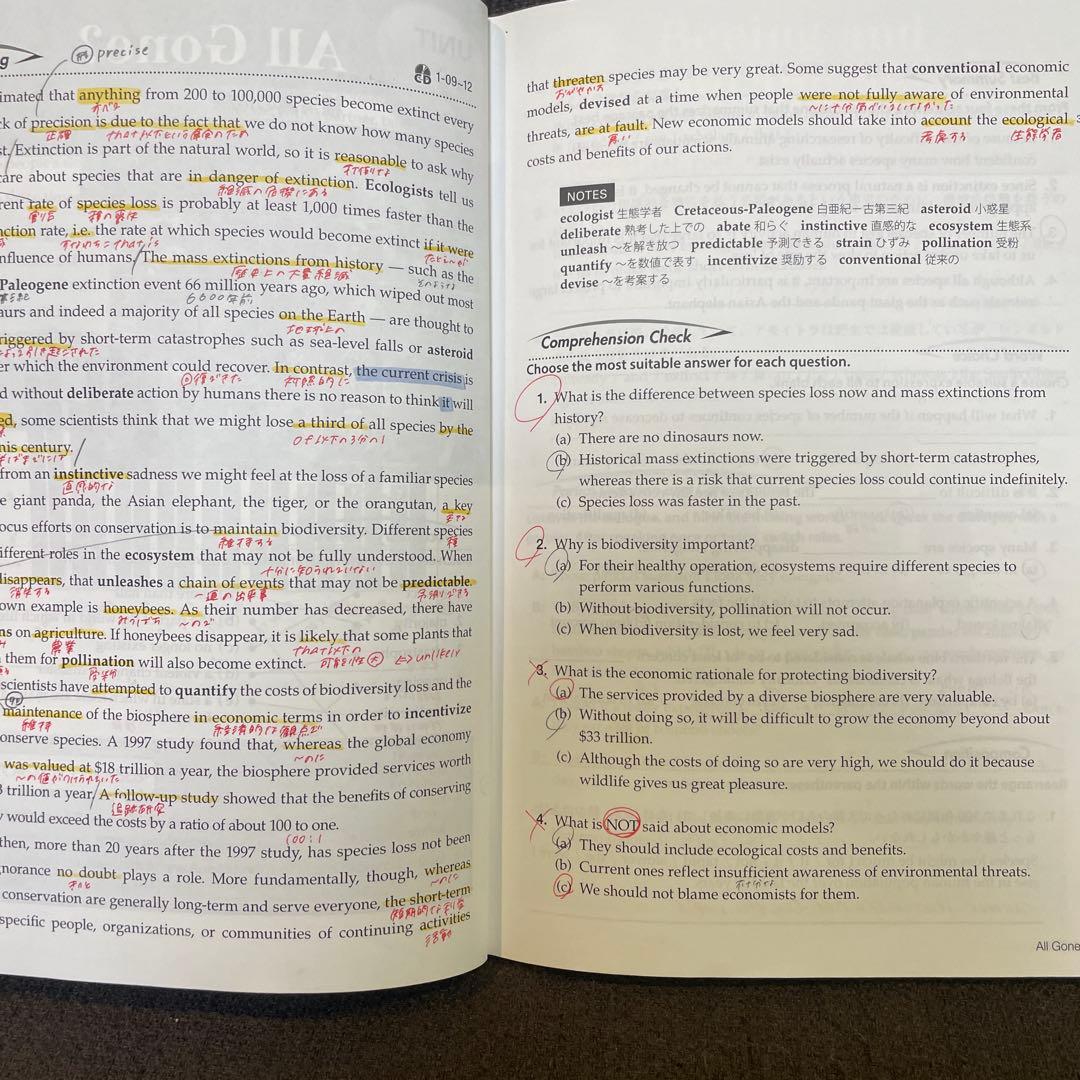 g
precise
CD 1-09~12
imated that anything from 200 to 100,000 species become extinct every
ck of precision is due to the fact that we do not know how many species
正確
st. Extinction is part of the natural world, so it is reasonable to ask why
care about species that are in danger of extinction. Ecologists tell us
絶滅の危機にある
rent rate of species loss is probably at least 1,000 times faster than the
割合 種の損失
nction rate, i.e. the rate at which species would become extinct if it were
すなわち=that is
nfluence of humans. The mass extinctions from history — such as the
歴史上の大量絶滅
Paleogene extinction event 66 million years ago, which wiped out most
6600年前
aurs and indeed a majority of all species on the Earth — are thought to
地球上の
riggered by short-term catastrophes such as sea-level falls or asteroid
er which the environment could recover. In contrast, the current crisis is
対照的に
d without deliberate action by humans there is no reason to think it will
ed, some scientists think that we might lose a third of all species by the
3分の1
his century.
from an instinctive sadness we might feel at the loss of a familiar species
直感的な
e giant panda, the Asian elephant, the tiger, or the orangutan, a key
主な
ocus efforts on conservation is to maintain biodiversity. Different species
維持する 種
ifferent roles in the ecosystem that may not be fully understood. When
十分に知られていない
disappears, that unleashes a chain of events that may not be predictable.
消失する 一連の出来事 予測できる
own example is honeybees. As their number has decreased, there have
みつばち ~ので
ns on agriculture. If honeybees disappear, it is likely that some plants that
農業 that以下の
them for pollination will also become extinct.
受粉 可能性大 ⇔ unlikely
scientists have attempted to quantify the costs of biodiversity loss and the
maintenance of the biosphere in economic terms in order to incentivize
維持 経済的な観点で
onserve species. A 1997 study found that, whereas the global economy
~のに
was valued at $18 trillion a year, the biosphere provided services worth
3 trillion a year. A follow-up study showed that the benefits of conserving
追跡研究
y would exceed the costs by a ratio of about 100 to one.
100:1
then, more than 20 years after the 1997 study, has species loss not been
norance no doubt plays a role. More fundamentally, though, whereas
~のに
conservation are generally long-term and serve everyone, the short-term
短期的な利益
specific people, organizations, or communities of continuing activities
活動
that threaten species may be very great. Some suggest that conventional economic
おびやかす
models, devised at a time when people were not fully aware of environmental
threats, are at fault. New economic models should take into account the ecological
悪い 考慮する
costs and benefits of our actions.
NOTES
ecologist 生態学者 Cretaceous-Paleogene 白亜紀－古第三紀 asteroid 小惑星
deliberate 熟考した上での abate 和らぐ instinctive 直感的な ecosystem 生態系
unleash ～を解き放つ predictable 予測できる strain ひずみ pollination 受粉
quantify ～を数値で表す incentivize 奨励する conventional 従来の
devise ～を考案する
Comprehension Check
Choose the most suitable answer for each question.
1. What is the difference between species loss now and mass extinctions from
history?
(a) There are no dinosaurs now.
(b) Historical mass extinctions were triggered by short-term catastrophes,
whereas there is a risk that current species loss could continue indefinitely.
(c) Species loss was faster in the past.
2. Why is biodiversity important?
(a) For their healthy operation, ecosystems require different species to
perform various functions.
(b) Without biodiversity, pollination will not occur.
(c) When biodiversity is lost, we feel very sad.
3. What is the economic rationale for protecting biodiversity?
(a) The services provided by a diverse biosphere are very valuable.
(b) Without doing so, it will be difficult to grow the economy beyond about
$33 trillion.
(c) Although the costs of doing so are very high, we should do it because
wildlife gives us great pleasure.
4. What is NOT said about economic models?
(a) They should include ecological costs and benefits.
(b) Current ones reflect insufficient awareness of environmental threats.
不十分な
(c) We should not blame economists for them.
All Gone